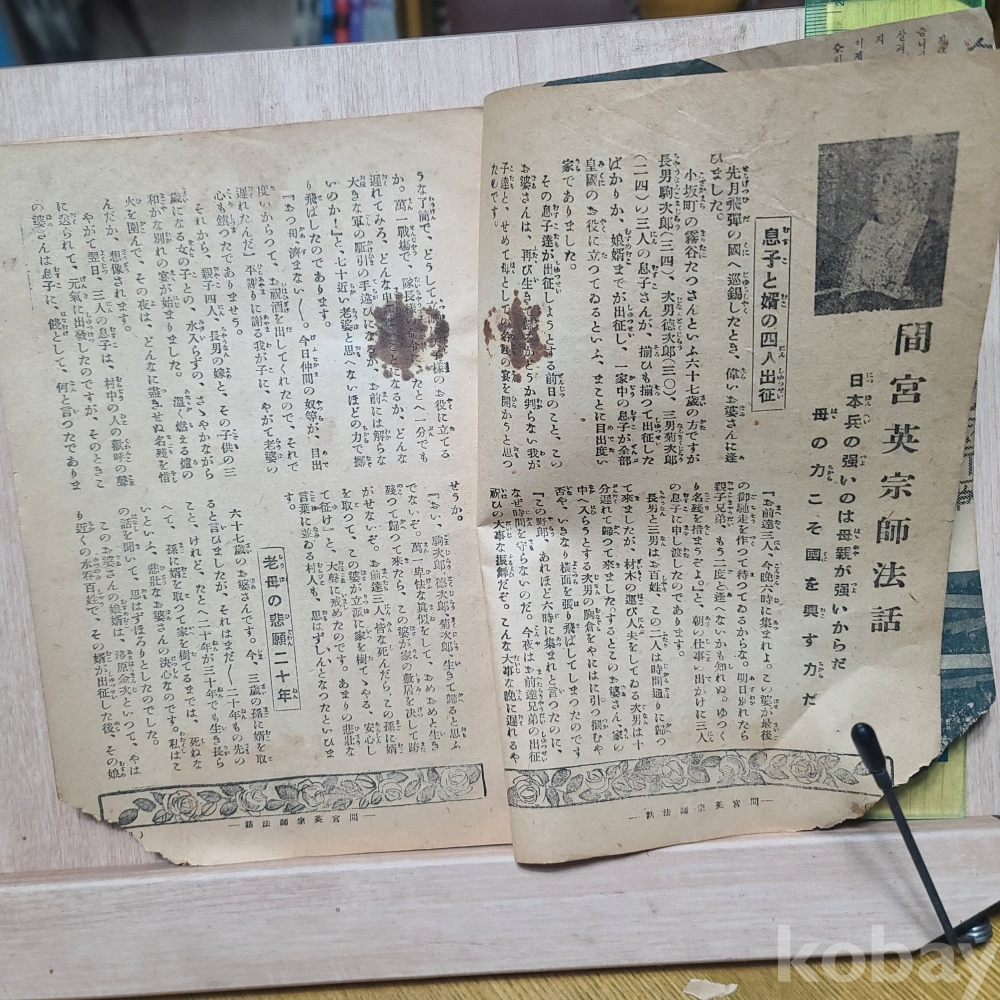 間宮英宗師法話
日本兵の强いのは母親が强いからだ
母の力こそ國を興す力だ
息子と婿の四人出征
先月飛驒の國へ巡錫したとき、偉いお婆さんに逢
ひました。
小坂町の霧谷たつさんといふ六十七歲の方ですが
長男駒次郎(三四)、次男德次郎(三〇)、三男菊次郎
(二四)の三人の息子さんが、揃ひも揃つて出征した
ばかりか、娘婿までが出征し、一家中の息子が全部
皇國のお役に立つてゐるといふ、まことに目出度い
家でありました。
その息子達が出征しようとする前日のこと、この
お婆さんは、再び生きて歸るかどうか判らない我が
子達と、せめて母としての名殘の宴を開かうと思つ
たのです。
『お前達三人、今晚六時に集まれよ。この婆が最後
の御馳走を作つて待つてゐるからな。明日別れたら
親子兄弟、もう二度と逢へないかも知れぬ。ゆつく
り名殘を惜まうぞよ。』と、朝の仕事に出がけに三人
の息子に申し渡したのであります。
長男と三男はお百姓、この二人は時間通りに歸つ
て來ましたが、材木の運び人夫をしてゐる次男は十
分遲れて歸つて來ました。するとこのお婆さん、家の
中へ入らうとする次男の胸倉をやにはに引つ摑むや
否や、いきなり橫面を張り飛ばしてしまつたのです
『この野郎、あれほど六時に集まれと言つたのに、
なぜ時間を守らないのだ。今夜はお前達兄弟の出征
祝ひの大事な振舞だぞ。こんな大事な晚に遲れるや
―間宮英宗師法話―
うな了簡で、どうして
樣のお役に立てる
か。萬一戰場で、隊長樣の
たとへ一分でも
遲れてみろ、どんな申
ことになるか、どんな
大きな軍の駈引の手違ひになるか、お前には解らな
いのか！』と、七十近い老婆と思へないほどの力で擲
り飛ばしたのであります。
『おつ母、濟まない―。今日仲間の奴等が、目出
度いからつて、お祝酒を出してくれたので、それで
遲れたんだ』平謝りに謝る我が子に、やがて老婆の
心も鎭つたでありませう。
それから、親子四人、長男の嫁と、その子供の三
歲になる女の子との、水入らずの、さゝやかながら
和かな別れの宴が始まりました。溫く燃える爐の
火を圍んで、その夜は、どんなに盡きせぬ名殘を惜
んだか、想像されます。
やがて翌日、三人の息子は、村中の人の歡呼の聲
に送られて、元氣に出發したのですが、そのときこ
の婆さんは息子に、餞として、何と言つたでありま
せうか。
『おい、駒次郎、德次郎、菊次郎、生きて歸ると思ふ
でないぞ。萬一卑怯な眞似をして、おめおめと生き
殘つて歸つて來たら、この婆が家の敷居を決して跨
がせないぞ。お前達三人が皆な死んだら、この孫に婿
を取つて、この婆が立派に家を樹てゝやる、安心し
て征け』と、大聲に戒めたのです。あまりの悲壯な
言葉に並ゐる村人も、思はずしいんとなつたといひま
す。
老母の悲願二十年
六十七歲のお婆さんです。今、三歲の孫に婿を取
ると言ひましたが、それはまだ―二十年もの先の
こと、けれど、たとへ二十年が三十年でも生き長ら
へて、孫に婿を取つて家を樹てるまでは、死ねな
いといふ、悲壯なお婆さんの決心なのです。私はこ
の話を聞いて、思はずほろりとしたのでした。
このお婆さんの娘婿は、洛原金次といつて、やは
り近くの水呑百姓で、その婿が出征した後、その娘
―間宮英宗師法話―
kobay